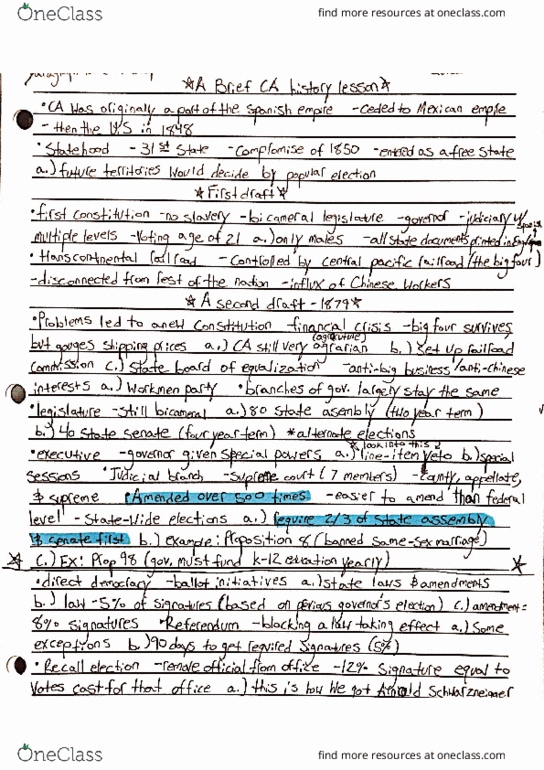 OneClass find more resources at oneclass.com
☆A Brief CA history lesson☆
•CA was originally a part of the Spanish empire -Ceded to Mexican empire
-then the U.S in 1848
•Statehood -31st State -Compromise of 1850 -entered as a free state
a.) future territories would decide by popular election
☆First draft☆
•first constitution -no slavery -bicameral legislature -governor -judiciary w/
multiple levels -Voting age of 21 a.) only males -all state documents printed in Eng/Spanish
•transcontinental railroad -Controlled by central pacific railroad (the big four)
-disconnected from rest of the nation -influx of Chinese workers
☆A second draft -1879☆
•Problems led to a new Constitution -financial crisis -big four survives
but gouges shipping prices a.) CA still very agrarian (agriculture) b.) set up railroad
commission c.) State board of equalization -anti-big business/anti-chinese
interests a.) Workmen party •branches of gov. largely stay the same
•legislature -still bicameral a.) 80 state asembly (two year term)
b.) 40 State senate (four year term) *alternate elections
* look into this
•executive -governor given special powers a.) line-item veto b.) special
sessions •Judicial branch -supreme court (7 members) -County, appellate,
& supreme •Amended over 500 times -easier to amend than federal
level -State-wide elections a.) require 2/3 of state assembly
& senate first b.) example: Proposition 8 (banned same-sex marriage)
☆ C.) Ex: Prop 98 (gov. must fund K-12 education yearly) ☆
•direct democracy -ballot initiatives a.) state laws & amendments
b.) law -5% of signatures (based on pervious governor's election) c.) amendment=
8% signatures •Referendum -blocking a law taking effect a.) Some
exceptions b.) 90 days to get required signatures (5%)
•Recall election -remove official from office -12% signature equal to
votes cast for that office a.) this is how we got Arnold Schwarzneigner
OneClass find more resources at oneclass.com